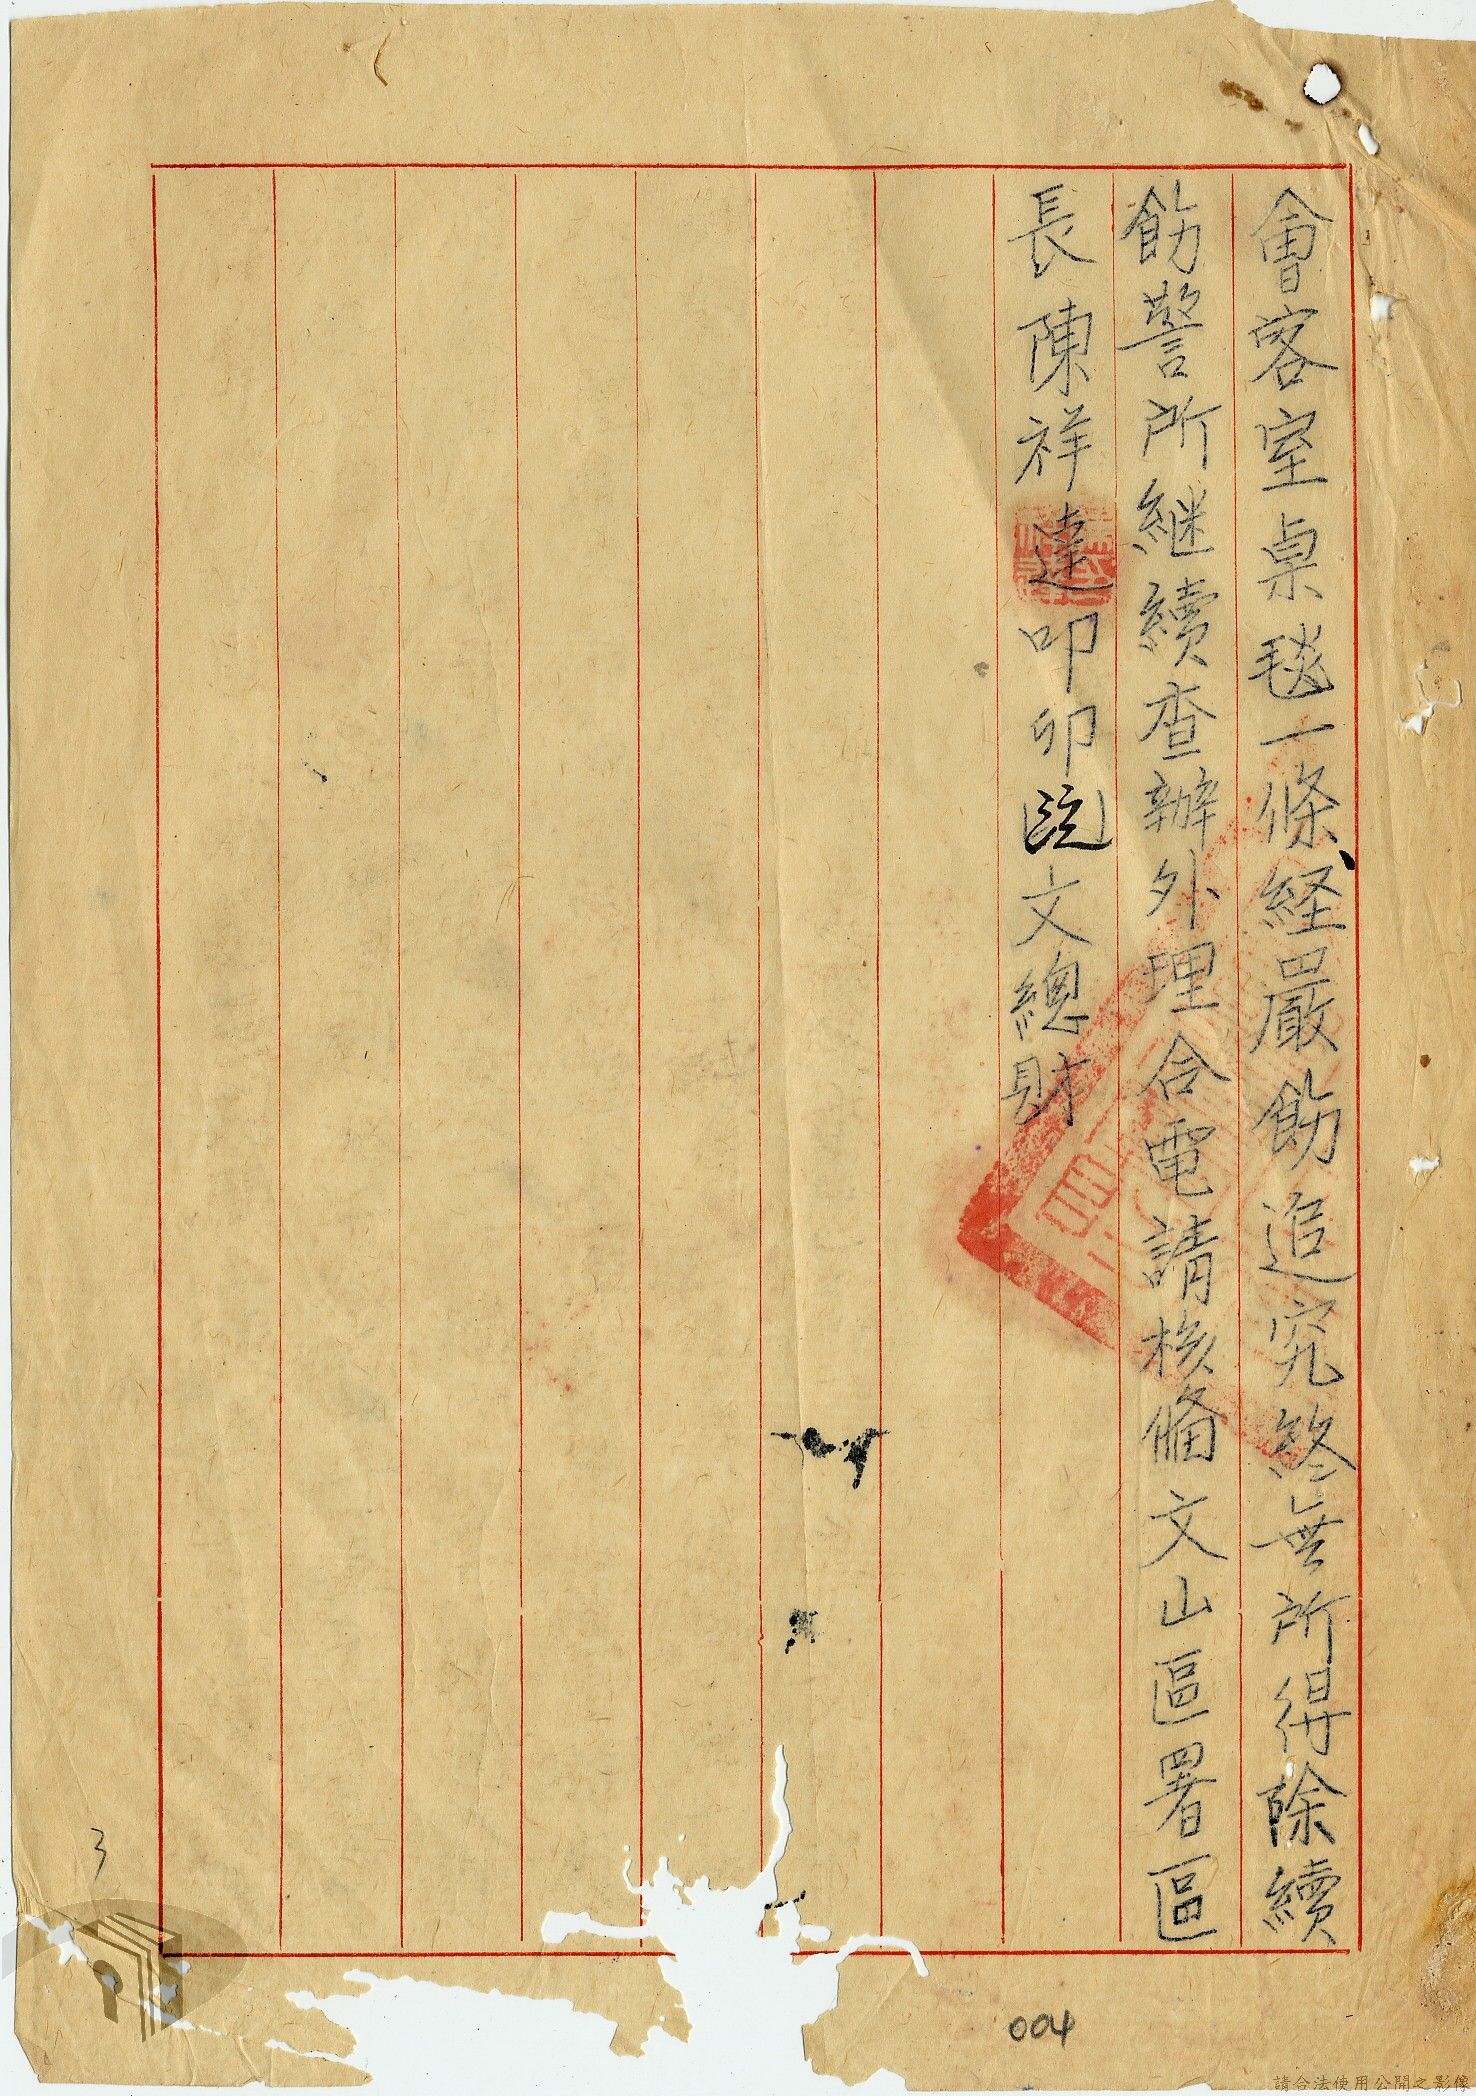 會客室桌毯一條、経嚴飭追究終無所得除續
飭警所継續查辦外理合電請核備文山區署區
長陳祥達叩卯文總財
3
004
請合法使用公開之影像